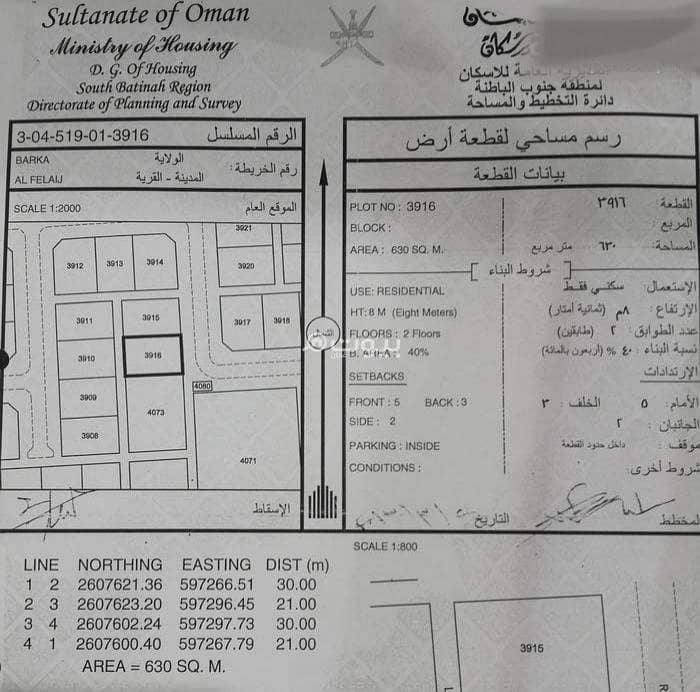 Sultanate of Oman
Ministry of Housing
D. G. Of Housing
South Batinah Region
Directorate of Planning and Survey
العامة للاسكان
لمنطقة جنوب الباطنة
دائرة التخطيط والمساحة
3-04-519-01-3916 الرقم المسلسل
BARKA الولاية
رقم الخريطة:
AL FELAIJ المدينة - القرية
SCALE 1:2000 الموقع العام
3921
3912 3913 3914 3920
3911 3915 3917 3918
3910 3916
3909 4073 4080
3908 4071
الإسقاط
الشمال
رسم مساحي لقطعة أرض
بيانات القطعة
PLOT NO : 3916 ٣٩١٦ القطعة :
BLOCK : المربع :
AREA : 630 SQ. M. ٦٣٠ متر مربع المساحة :
شروط البناء
USE: RESIDENTIAL سكني فقط الإستعمال:
HT: 8 M (Eight Meters) ٨م (ثمانية أمتار) الإرتفاع :
FLOORS : 2 Floors ٢ (طابقين) عدد الطوابق :
B. AREA : 40% ٤٠ % (أربعون بالمائة) نسبة البناء :
SETBACKS الإرتدادات
FRONT : 5 BACK : 3 ٣ الخلف : ٥ الأمام :
SIDE : 2 ٢ الجانبان :
PARKING : INSIDE داخل حدود القطعة موقف :
CONDITIONS : شروط أخرى:
التاريخ المخطط
SCALE 1:800
LINE NORTHING EASTING DIST (m)
1 2 2607621.36 597266.51 30.00
2 3 2607623.20 597296.45 21.00
3 4 2607602.24 597297.73 30.00
4 1 2607600.40 597267.79 21.00
AREA = 630 SQ. M.
3915